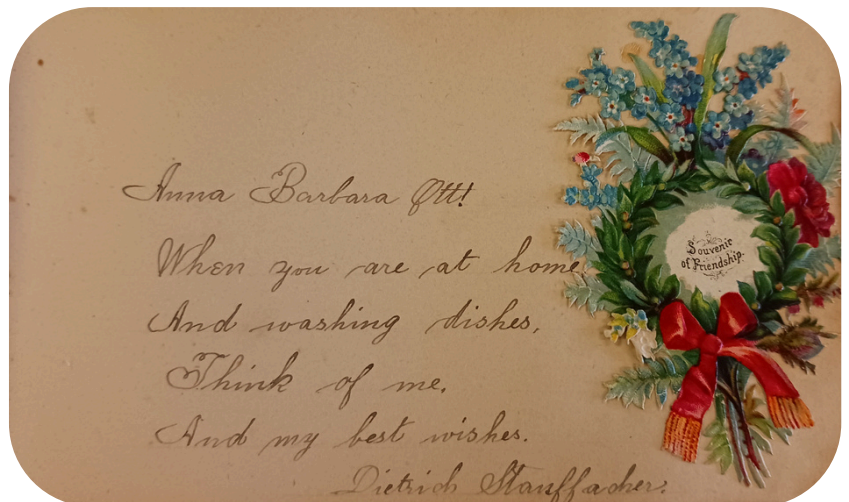 Anna Barbara Ott!
When you are at home
And washing dishes,
Think of me,
And my best wishes.
Dietrich Stauffacher.
Souvenir
of Friendship.